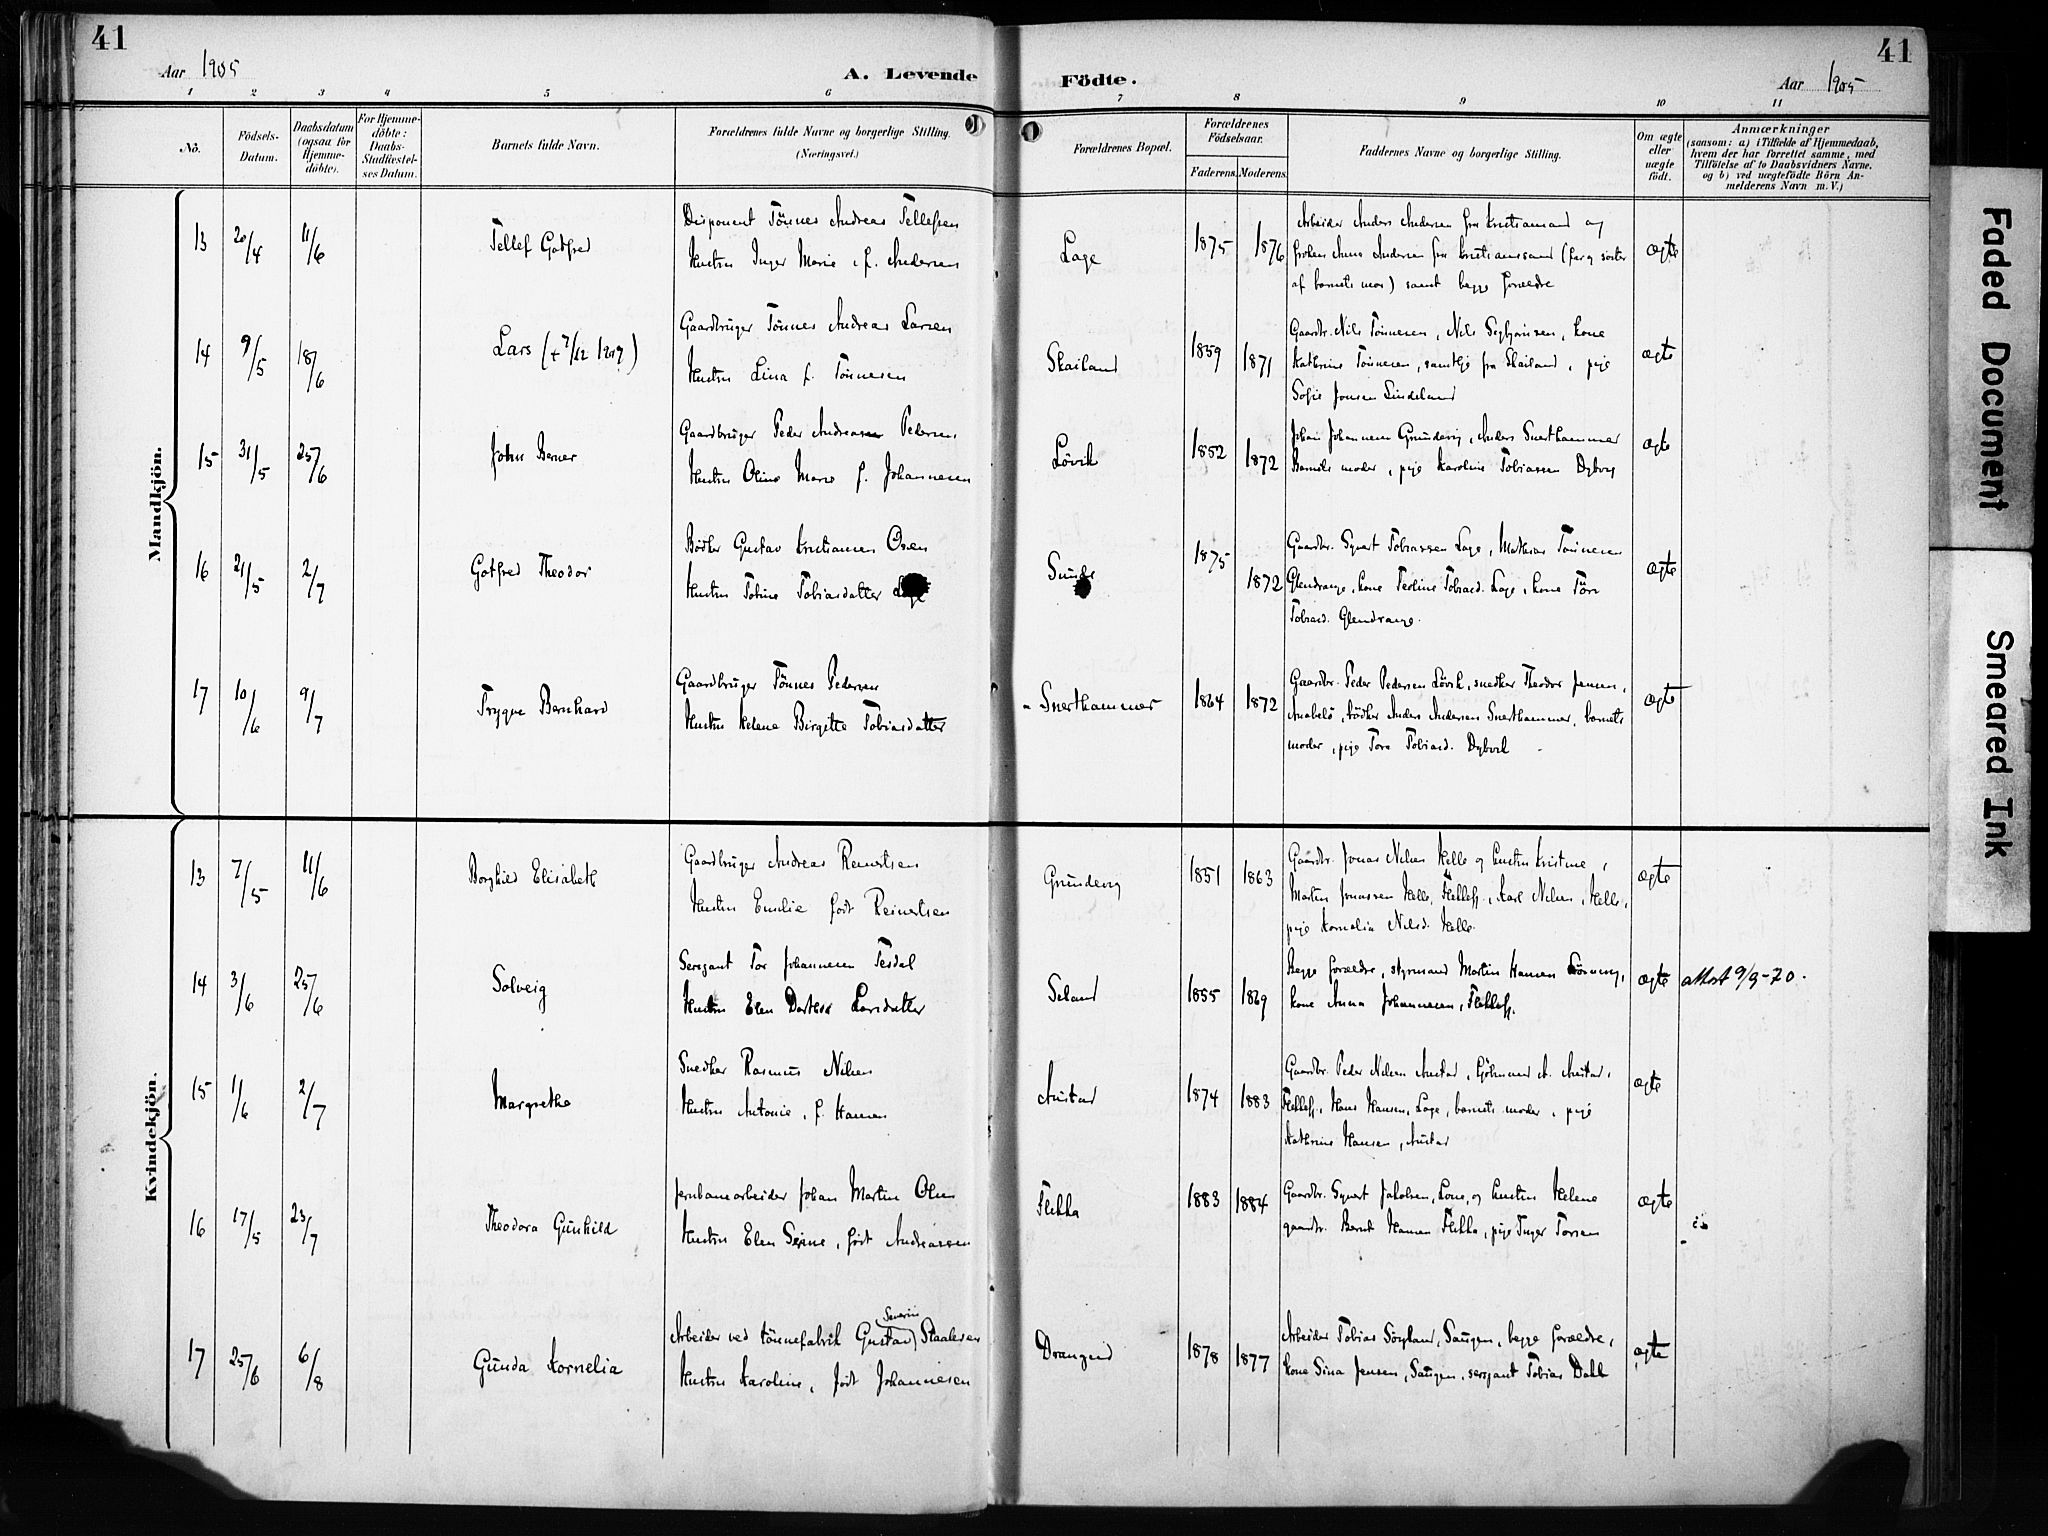 41
Aar 1905
A. Levende
Födte.
Aar 1905
41
1 2 3 4 5 6 7 8 9 10 11
Nò.
Födsels-
Datum.
Daabsdatum
(ogsaa for
Hjemme-
döbte).
For Hjemme-
döbte:
Daabs-
Stadfæstel-
ses Datum.
Barnets fulde Navn.
Forældrenes fulde Navne og borgerlige Stilling.
(Næringsvei.)
Forældrenes Bopæl.
Forældrenes
Födselsaar.
Faderens. Moderens.
Faddernes Navne og borgerlige Stilling.
Om ægte
eller
uægte
født.
Anmærkninger
(saasom: a) i Tilfælde af Hjemmedaab,
hvem der har forrettet samme, med
Tilföielse af to Daabsvidners Navne.
og b) ved uægtefödte Börn An-
melderens Navn m. V.)
Mandkjön.
13 20/4 11/6 Tellef Gotfred
Disponent Tönnes Andreas Tellefsen
Hustru Inger Marie f. Andersen
Lage 1875 1876
Arbeider Anders Andersen fra Kristiansand og
frøken Anna Andersen fra Kristianssand (far og søster
af barnets mor) samt begge forældre
ægte
14 9/5 18/6 Lars (+ 7/12 1907)
Gaardbruger Tönnes Andreas Larsen
Hustru Lina f. Tönnesen
Skailand 1859 1871
Gaardbr. Nils Tönnesen, Nils kone
Kathrine Tönnesen, samtlige fra Skailand, pige
Sofie Jonsen Lindeland
ægte
15 31/5 25/6 John Berner
Gaardbruger Peder Andreas Pedersen
Hustru Oline Marie f. Johannesen
Lövik 1852 1872
Johan Johannesen Grundevig, Anders Snerthammer
Barnets moder, pige Karoline Tobiassen Dybvig
ægte
16 21/5 2/7 Gotfred Theodor
Bödker Gustav Kristiansen Osen
Hustru Tobine Tobiasdatter Lage
Sunde 1875 1872
Gaardbr. Syvert Tobiassen Lage, Mathias Tönnesen
Glendrange, kone Teoline Tobiasd. Lage, kone
Tobiasd. Glendrange.
ægte
17 10/6 9/7 Trygve Bernhard
Gaardbruger Tönnes Pedersen
Hustru Helene Birgitte Tobiasdatter
Snerthammer 1864 1872
Gaardbr. Peder Pedersen Lövik, snedker Theodor Jensen,
Anabelö, bödker Anders Andersen Snerthammer, barnets
moder, pige Tora Tobiasd. Dybvik
ægte
Kvindekjön.
13 7/5 11/6 Borghild Elisabeth
Gaardbruger Andreas Reinertsen
Hustru Emilie født Reinertsen
Grundevig 1851 1863
Gaardbr. Jonas Nilsen Helle og hustru Kristine,
Martin Jonassen Helle, Flekkefj., Karl Nilsen, Helle,
pige Kornelia Nilsd. Helle.
ægte
14 3/6 25/6 Solveig
Sersjant Tor Johannesen Tesdal
Hustru Elen Dorthea Larsdatter
Seland 1855 1869
Begge forældre, styrmand Martin Hansen
kone Anna Johannesen, Flekkefj.
ægte attest 9/9-70.
15 1/6 2/7 Margrethe
Snedker Rasmus Nilsen
Hustru Antonie, f. Hansen
Austad 1874 1883
Gaardbr. Peder Nilsen Austad, A. Austad,
Flekkefj., Hans Hansen, Lage, barnets moder, pige
Kathrine Hansen, Austad
ægte
16 17/5 23/7 Theodora Gunhild
Jernbanearbeider Johan Martin Olsen
Hustru Elen Serine, født Andreassen
Flikka 1883 1884
Gaardbr. Syvert Jakobsen, Lone, og hustru Helene
gaardbr. Bernt Hansen Flikka, pige Inger Torsen
ægte
17 25/6 6/8 Gunda Kornelia
Severin
Arbeider ved tönnefabrik Gustav Staalesen
Hustru Karoline, født Johannesen
Drangeid 1878 1877
Arbeider Tobias Söyland, Saugen, begge forældre,
kone Sina Jensen, Saugen, sersjant Tobias Dahl
ægte
Faded Document
Smeared Ink